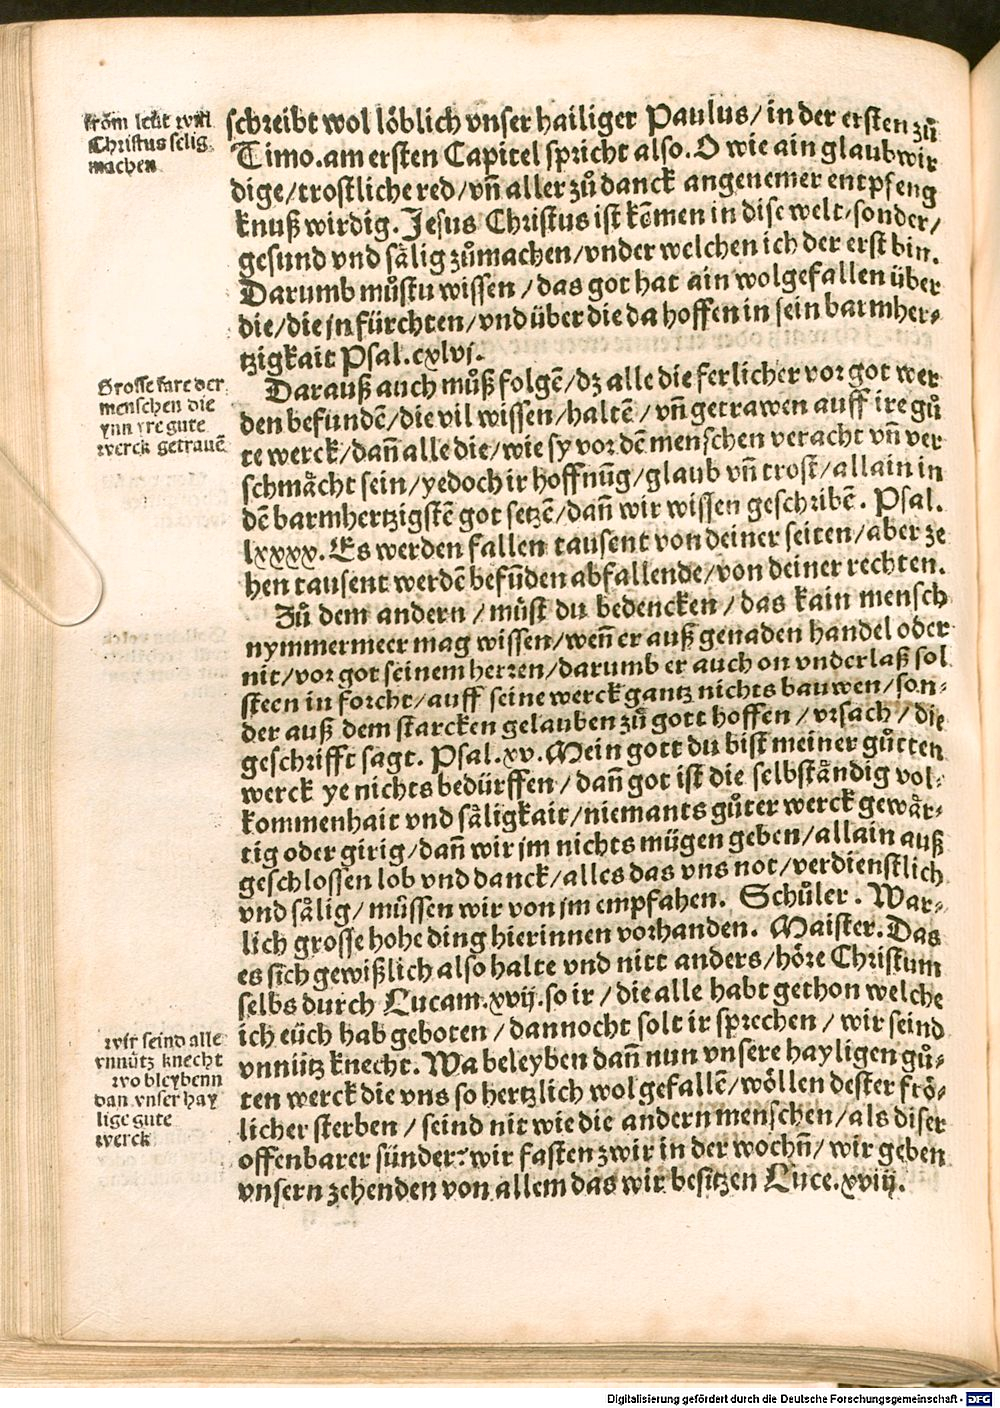 fröm leüt will
Christus selig
machen
schreibt wol löblich vnser hailiger Paulus/ in der ersten zů
Timo. am ersten Capitel spricht also. O wie ain glaubwir
dige/ trostliche red/ vñ aller zů danck angenemer entpfeng
knuß wirdig. Jesus Christus ist kẽmen in dise welt/ sonder/
gesund vnd sålig zůmachen/ vnder welchen ich der erst bin.
Darumb můstu wissen / das got hat ain wolgefallen über
die/ die jn fürchten/ vnd über die da hoffen in sein barmher⸗
tzigkait Psal. cxlvj.
Grosse fare der
menschen die
ynn yre gute
werck getrauẽ
Darauß auch můß folgẽ/ dz alle die ferlicher vor got wer
den befundẽ/ die vil wissen/ haltẽ / vñ getrawen auff ire gů
te werck/ dañ alle die/ wie sy vor dẽ menschen veracht vñ ver
schmächt sein/ yedoch ir hoffnũg/ glaub vñ trost/ allain in
dẽ barmhertzigstẽ got setzẽ/ dañ wir wissen geschribẽ. Psal.
lxxxx. Es werden fallen tausent von deiner seiten/ aber ze
hen tausent werdẽ befũden abfallende/ von deiner rechten.
Zů dem andern / můst du bedencken / das kain mensch
nymmermeer mag wissen/ weñ er auß genaden handel oder
nit/ vor got seinem herren/ darumb er auch on vnderlaß sol
steen in forcht/ auff seine werck gantz nichts bauwen/ son⸗
der auß dem starcken gelauben zů gott hoffen / vrsach / die
geschrifft sagt. Psal. xv. Mein gott du bist meiner gůtten
werck ye nichts bedürffen / dañ got ist die selbständig vol⸗
kommenhait vnd såligkait/ niemants gůter werck gewår⸗
tig oder girig/ dañ wir jm nichts mügen geben/ allain auß
geschlossen lob vnd danck/ alles das vns not/ verdienstlich
vnd sålig/ můssen wir von jm empfahen. Schůler. War⸗
lich grosse hohe ding hierinnen vorhanden. Maister. Das
es sich gewißlich also halte vnd nitt anders/ höre Christum
selbs durch Lucam. xvij. so ir / die alle habt gethon welche
wir seind alle
vnnütz knecht
wo bleybenn
dan vnser hay
lige gute
werck
ich eüch hab geboten / dannocht solt ir sprechen / wir seind
vnnütz knecht. Wa beleyben dañ nun vnsere hayligen gů⸗
ten werck die vns so hertzlich wol gefallẽ/ wöllen dester frö⸗
licher sterben / seind nit wie die andern menschen/ als diser
offenbarer sünder: wir fasten zwir in der wochñ/ wir geben
vnsern zehenden von allem das wir besitzen Luce. xviij.
Digitalisierung gefördert durch die Deutsche Forschungsgemeinschaft - DFG